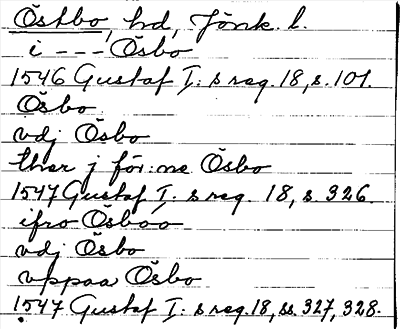 Östbo, hd, Jönk. l.
i --- Ösbo
1546 Gustaf I: s reg. 18, s. 101.
Ösbo
vdj Ösbo
ther j för:ne Ösbo
1547 Gustaf I: s reg. 18, s. 326.
ifro Ösboo
vdj Ösbo
vppaa Ösbo
1547 Gustaf I: s reg. 18, ss. 327, 328.